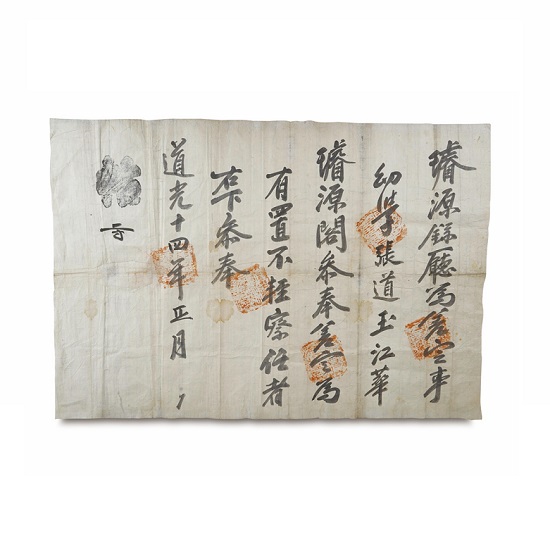 璿源錄廳爲差定事
幼學張道玉江華
璿源閣參奉差定爲
有置不輕察任者
右下參奉
道光十四年正月